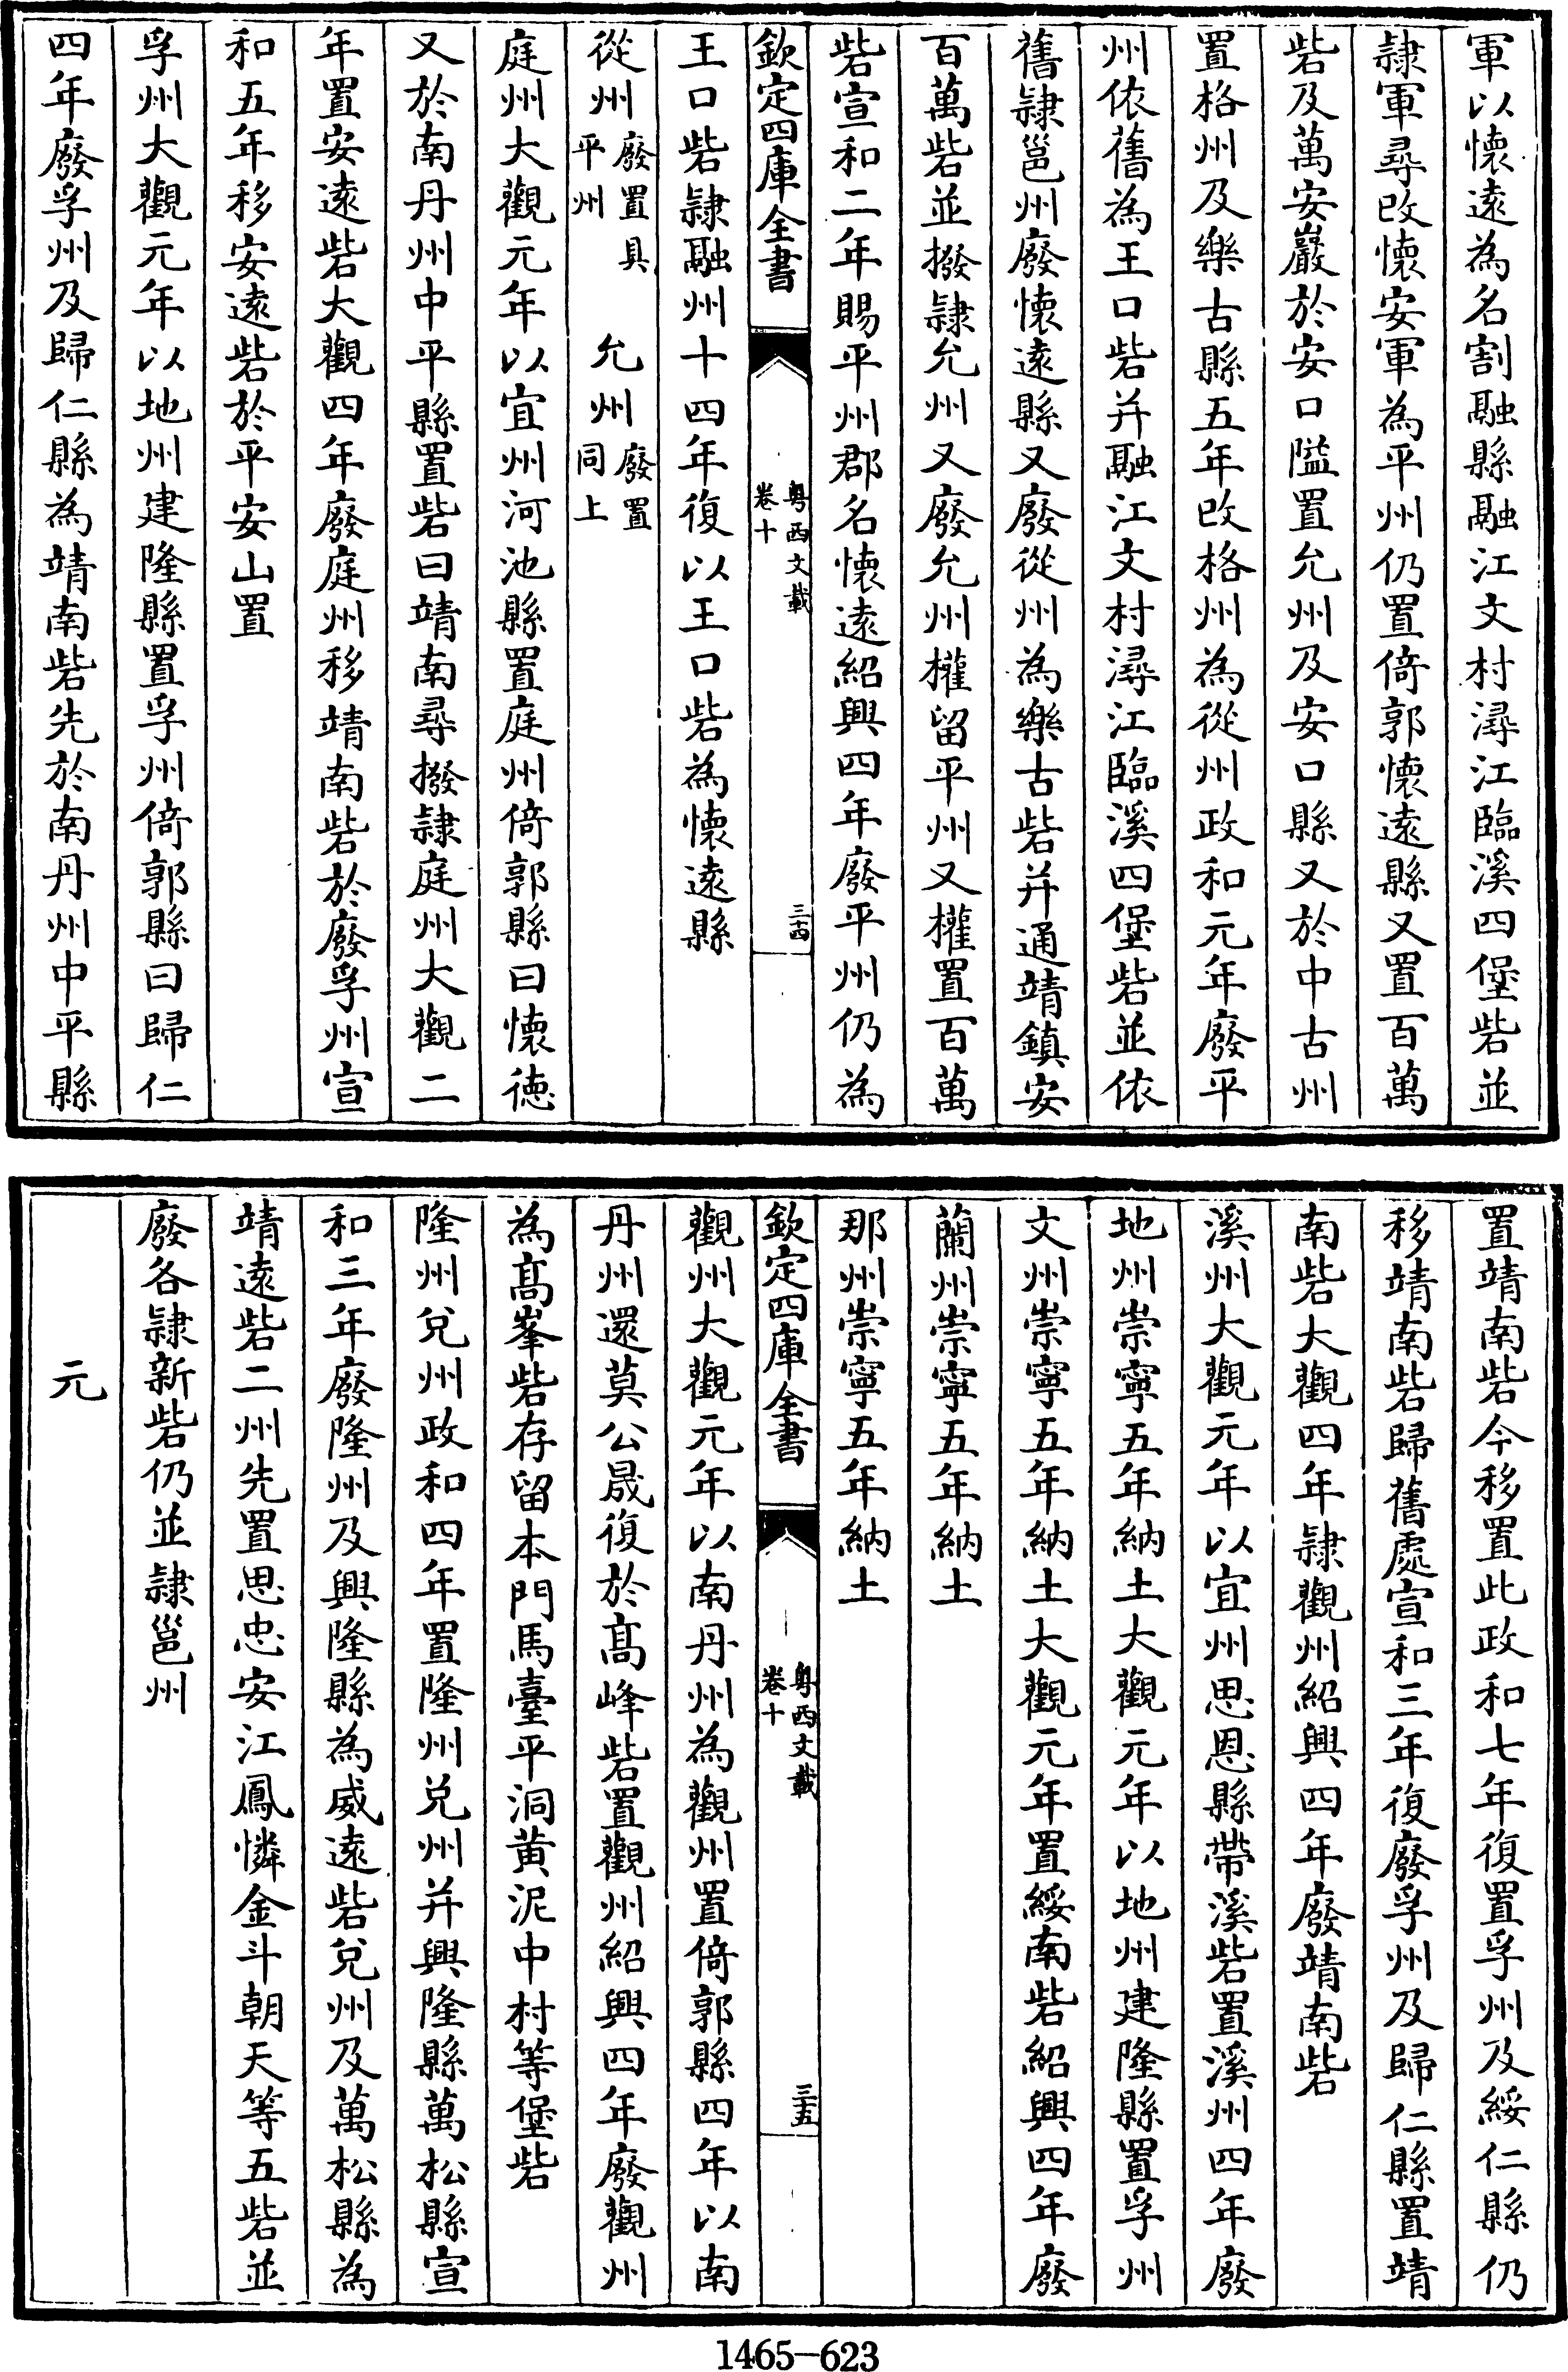 軍以懐逺為名割融縣融江文村潯江臨溪四堡砦並
隷軍尋改懐安軍為平州仍置倚郭懐逺縣又置百萬
砦及萬安巖於安口隘置允州及安口縣又於中古州
置格州及樂古縣五年改格州為從州政和元年廢平
州依舊為王口砦并融江文村潯江臨溪四堡砦並依
舊隷邕州廢懐逺縣又廢從州為樂古砦并通靖鎮安
百萬砦並撥隷允州又廢允州權留平州又權置百萬
砦宣和二年賜平州郡名懐逺紹興四年廢平州仍為
欽定四庫全書
粤西文載
卷十
三十四
王口砦隷融州十四年復以王口砦為懐逺縣
從州廢置具平州 允州廢置同上
庭州大觀元年以宜州河池縣置庭州倚郭縣曰懐徳
又於南丹州中平縣置砦曰靖南尋撥隷庭州大觀二
年置安逺砦大觀四年廢庭州移靖南砦於廢孚州宣
和五年移安逺砦於平安山置
孚州大觀元年以地州建隆縣置孚州倚郭縣曰歸仁
四年廢孚州及歸仁縣為靖南砦先於南丹州中平縣
置靖南砦今移置此政和七年復置孚州及綏仁縣仍
移靖南砦歸舊處宣和三年復廢孚州及歸仁縣置靖
南砦大觀四年隷觀州紹興四年廢靖南砦
溪州大觀元年以宜州思恩縣帶溪砦置溪州四年廢
地州崇寧五年納土大觀元年以地州建隆縣置孚州
文州崇寧五年納土大觀元年置綏南砦紹興四年廢
蘭州崇寧五年納土
那州崇寧五年納土
欽定四庫全書
粤西文載
卷十
三十五
觀州大觀元年以南丹州為觀州置倚郭縣四年以南
丹州還莫公晟復於髙峰砦置觀州紹興四年廢觀州
為髙峯砦存留本門馬臺平洞黄泥中村等堡砦
隆州兌州政和四年置隆州兌州并興隆縣萬松縣宣
和三年廢隆州及興隆縣為威逺砦兌州及萬松縣為
靖逺砦二州先置思忠安江鳳憐金斗朝天等五砦並
廢各隷新砦仍並隷邕州
元
1465-623